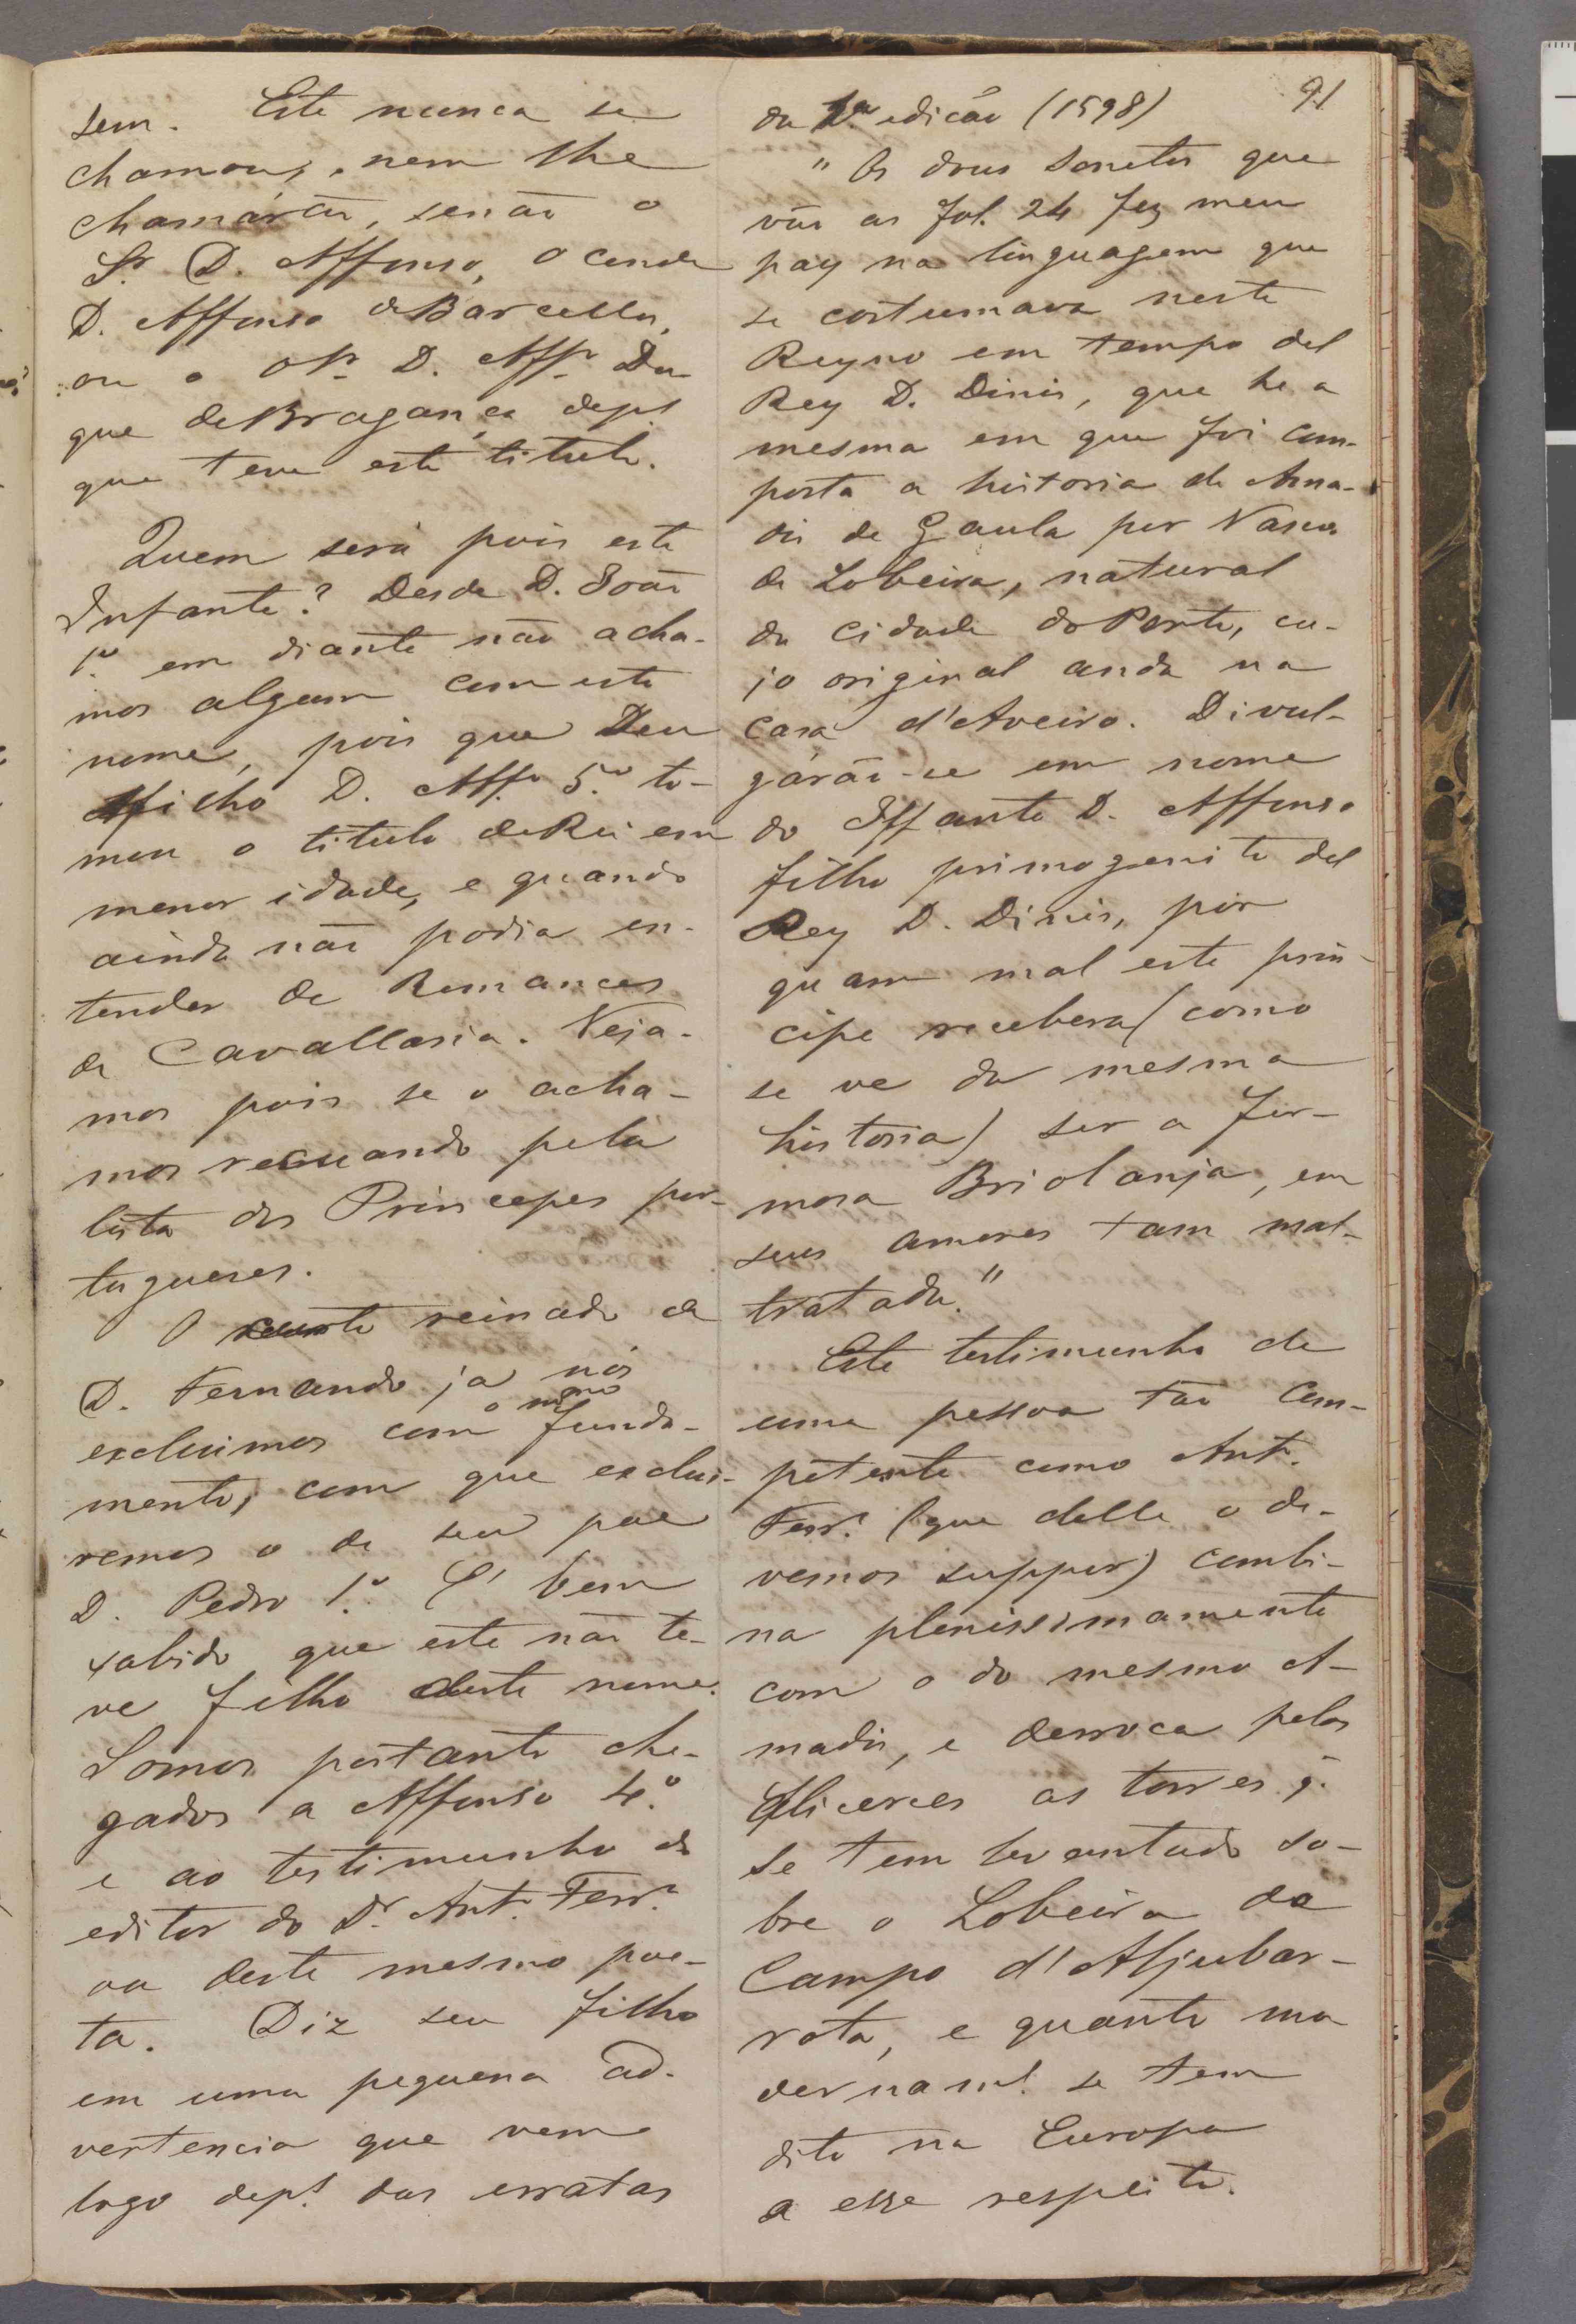 91
sem. Este nunca se
chamou, nem lhe
chamárão, senão o
Sr. D. Affonso, o conde
D. Affonso de Barcellos,
ou o Sr. D. Affº Du
que de Bragança deps
que teve este titulo.
Quem será pois este
Infante? Desde D. João
1.º em diante não acha-
mos algum com este
nome, pois que Seu
filho D. Affº 5.º to-
mou o titulo de Rei em
menor idade, e quando
ainda não podia en-
tender de Romances
de Cavallaria. Veja-
mos pois se o acha-
mos recuando pela
lista dos Principes por-
tugueses.
O curto reinado de
D. Fernando já nós
excluimos com o mmo funda-
mento, com que exclui-
remos o de seu pae
D. Pedro 1.º É bem
sabido que este não te-
ve filho deste nome.
Somos portanto che-
gados a Affonso 4.º
e ao testimunho do
editor do Dr. Antº Ferrª
ou deste mesmo poe-
ta. Diz seu filho
em uma pequena ad-
vertencia que vem
logo deps das erratas
da 1ª edição (1598)
"Os dous Sonetos que
vão as fol. 24 fez meu
pay na linguagem que
se costumava neste
Reyno em tempo del
Rey D. Dinis, que he a
mesma em que foi com-
posta a historia de Ama-
dis de Gaula por Vasco
de Lobeira, natural
da cidade do Porto, cu-
jo original anda na
Casa d'Aveiro. Divul-
gárão-se em nome
do Iffante D. Affonso
filho primogenito del
Rey D. Dinis, por
quam mal este prin-
cipe recebera (como
se ve da mesma
historia) ser a fer-
mosa Briolanja, em
seus amores tam mal-
tratada."
Este testimunho de
uma pessoa tão com-
petente como Antº
Ferrª (que delle o de-
vemos suppor) combi-
na plenissimamente
com o do mesmo A-
madis, e derroca pelos
aliceroes as torres q̃
se tem levantado so-
bre o Lobeira do
Campo d'Aljubar-
rota, e quanto mo
dernamt se tem
dito na Europa
a esse respeito.